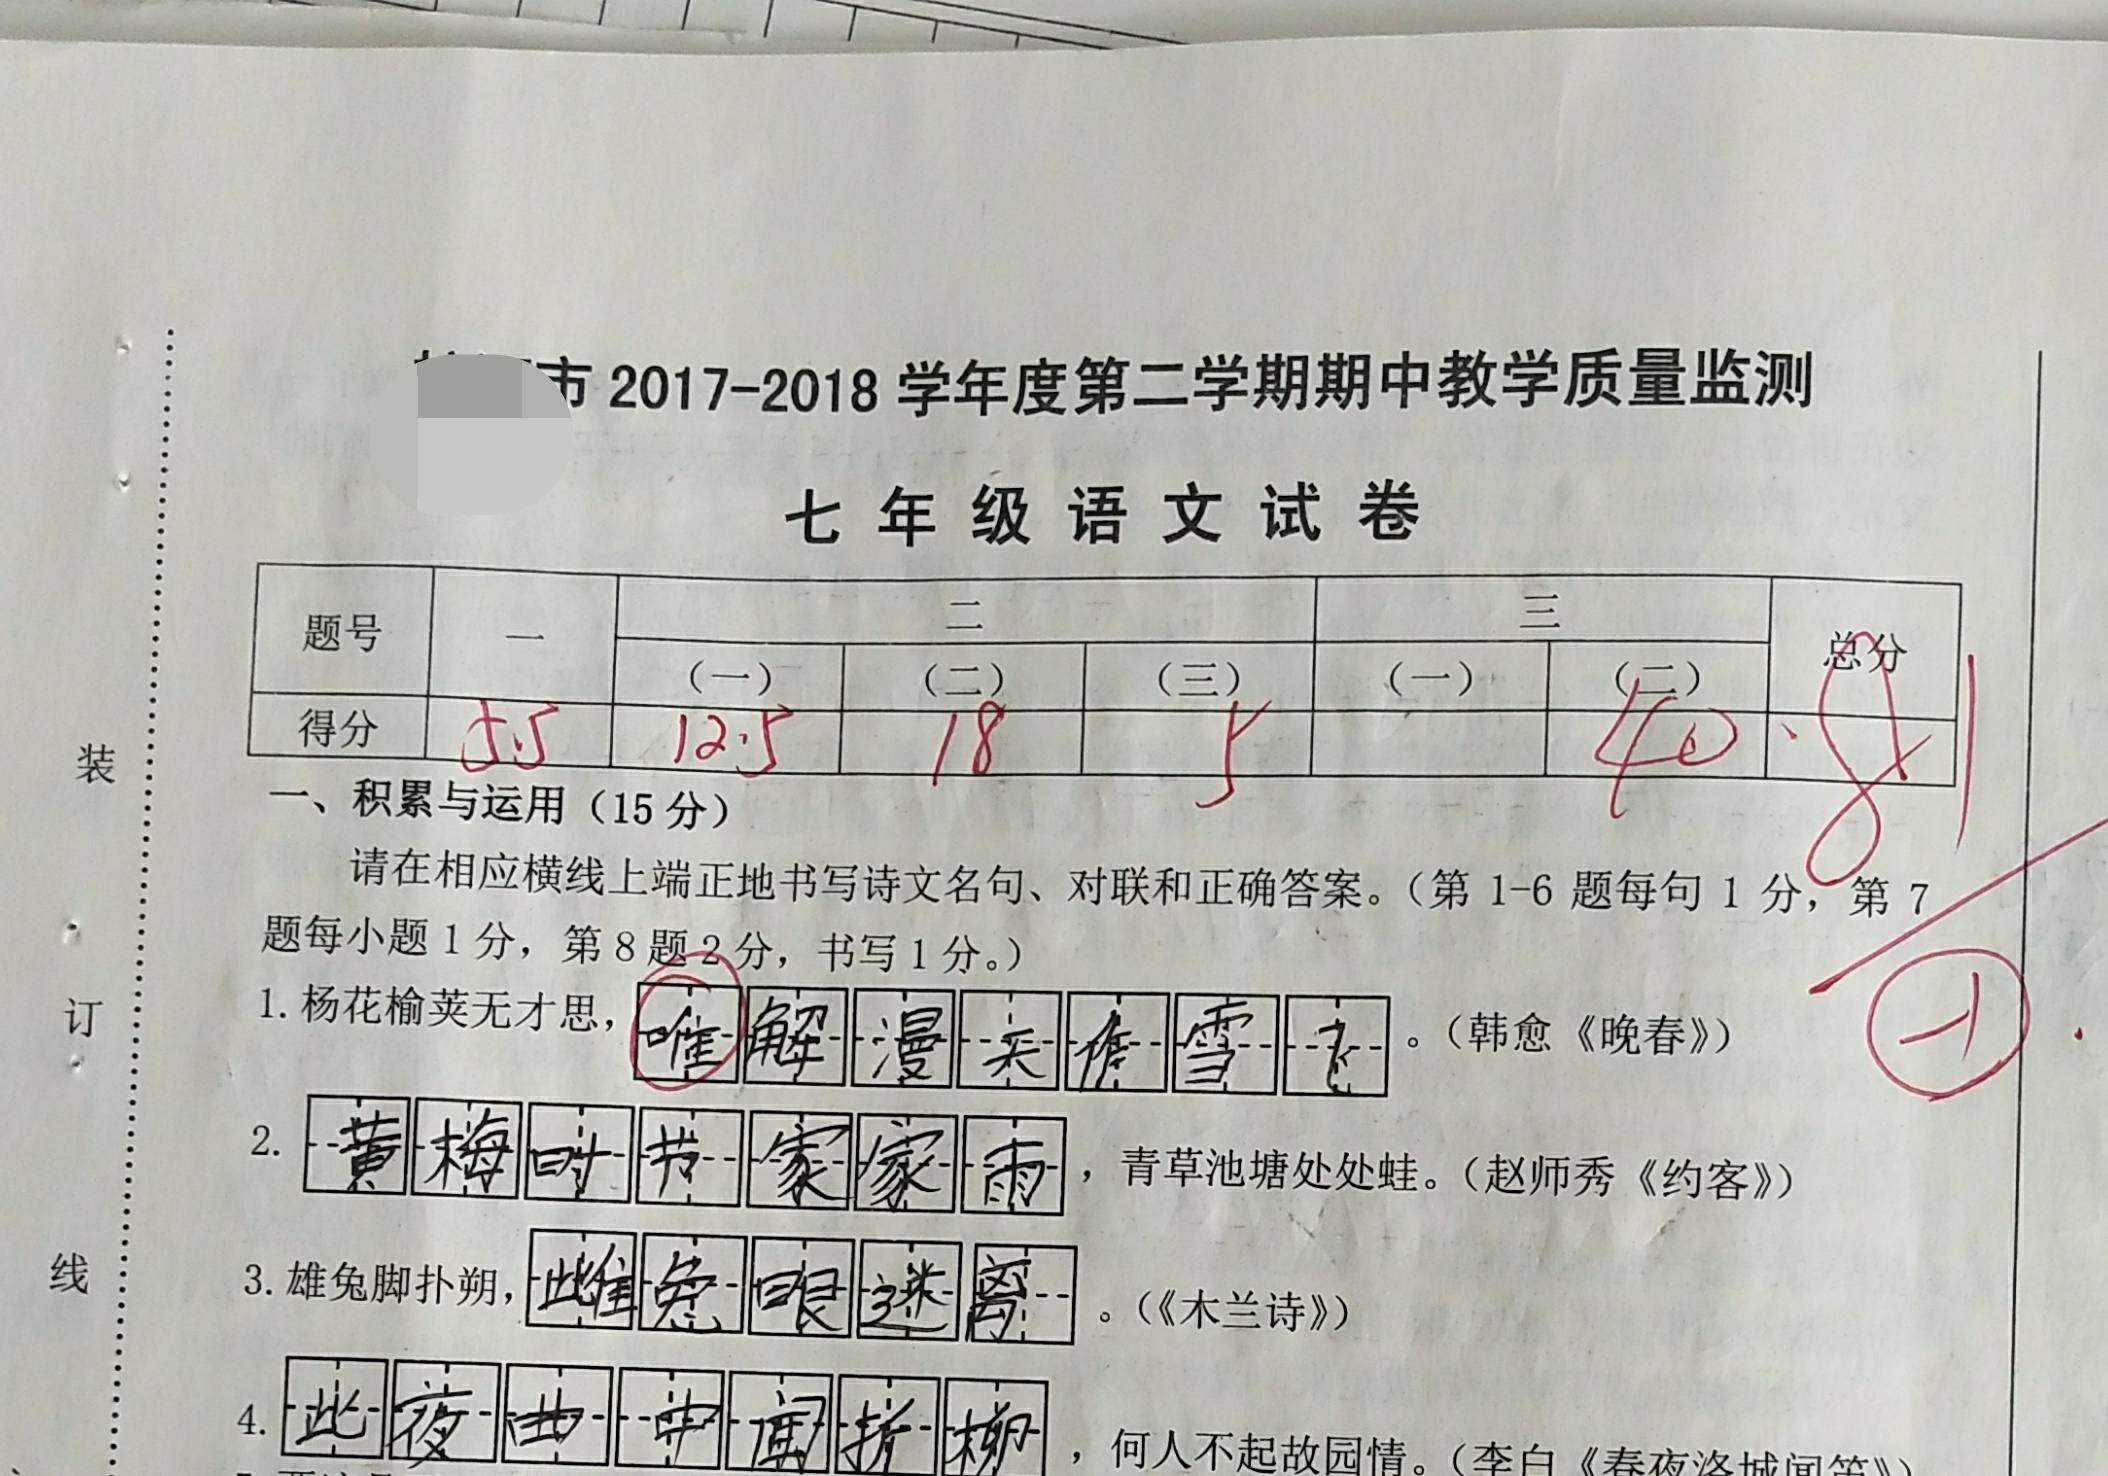 市 2017-2018 学年度第二学期期中教学质量监测
七年级语文试卷
题号 一 二 三 总分
（一） （二） （三） （一） （二）
得分 5.5 12.5 18 5 40 81
一、积累与运用（15 分）
请在相应横线上端正地书写诗文名句、对联和正确答案。（第 1-6 题每句 1 分，第 7
题每小题 1 分，第 8 题 2 分，书写 1 分。）
1. 杨花榆荚无才思，唯解漫天作雪飞。（韩愈《晚春》） -1
2. 黄梅时节家家雨，青草池塘处处蛙。（赵师秀《约客》）
3. 雄兔脚扑朔，雌兔眼迷离。（《木兰诗》）
4. 此夜曲中闻折柳，何人不起故园情。（李白《春夜洛城闻笛》）
装
订
线